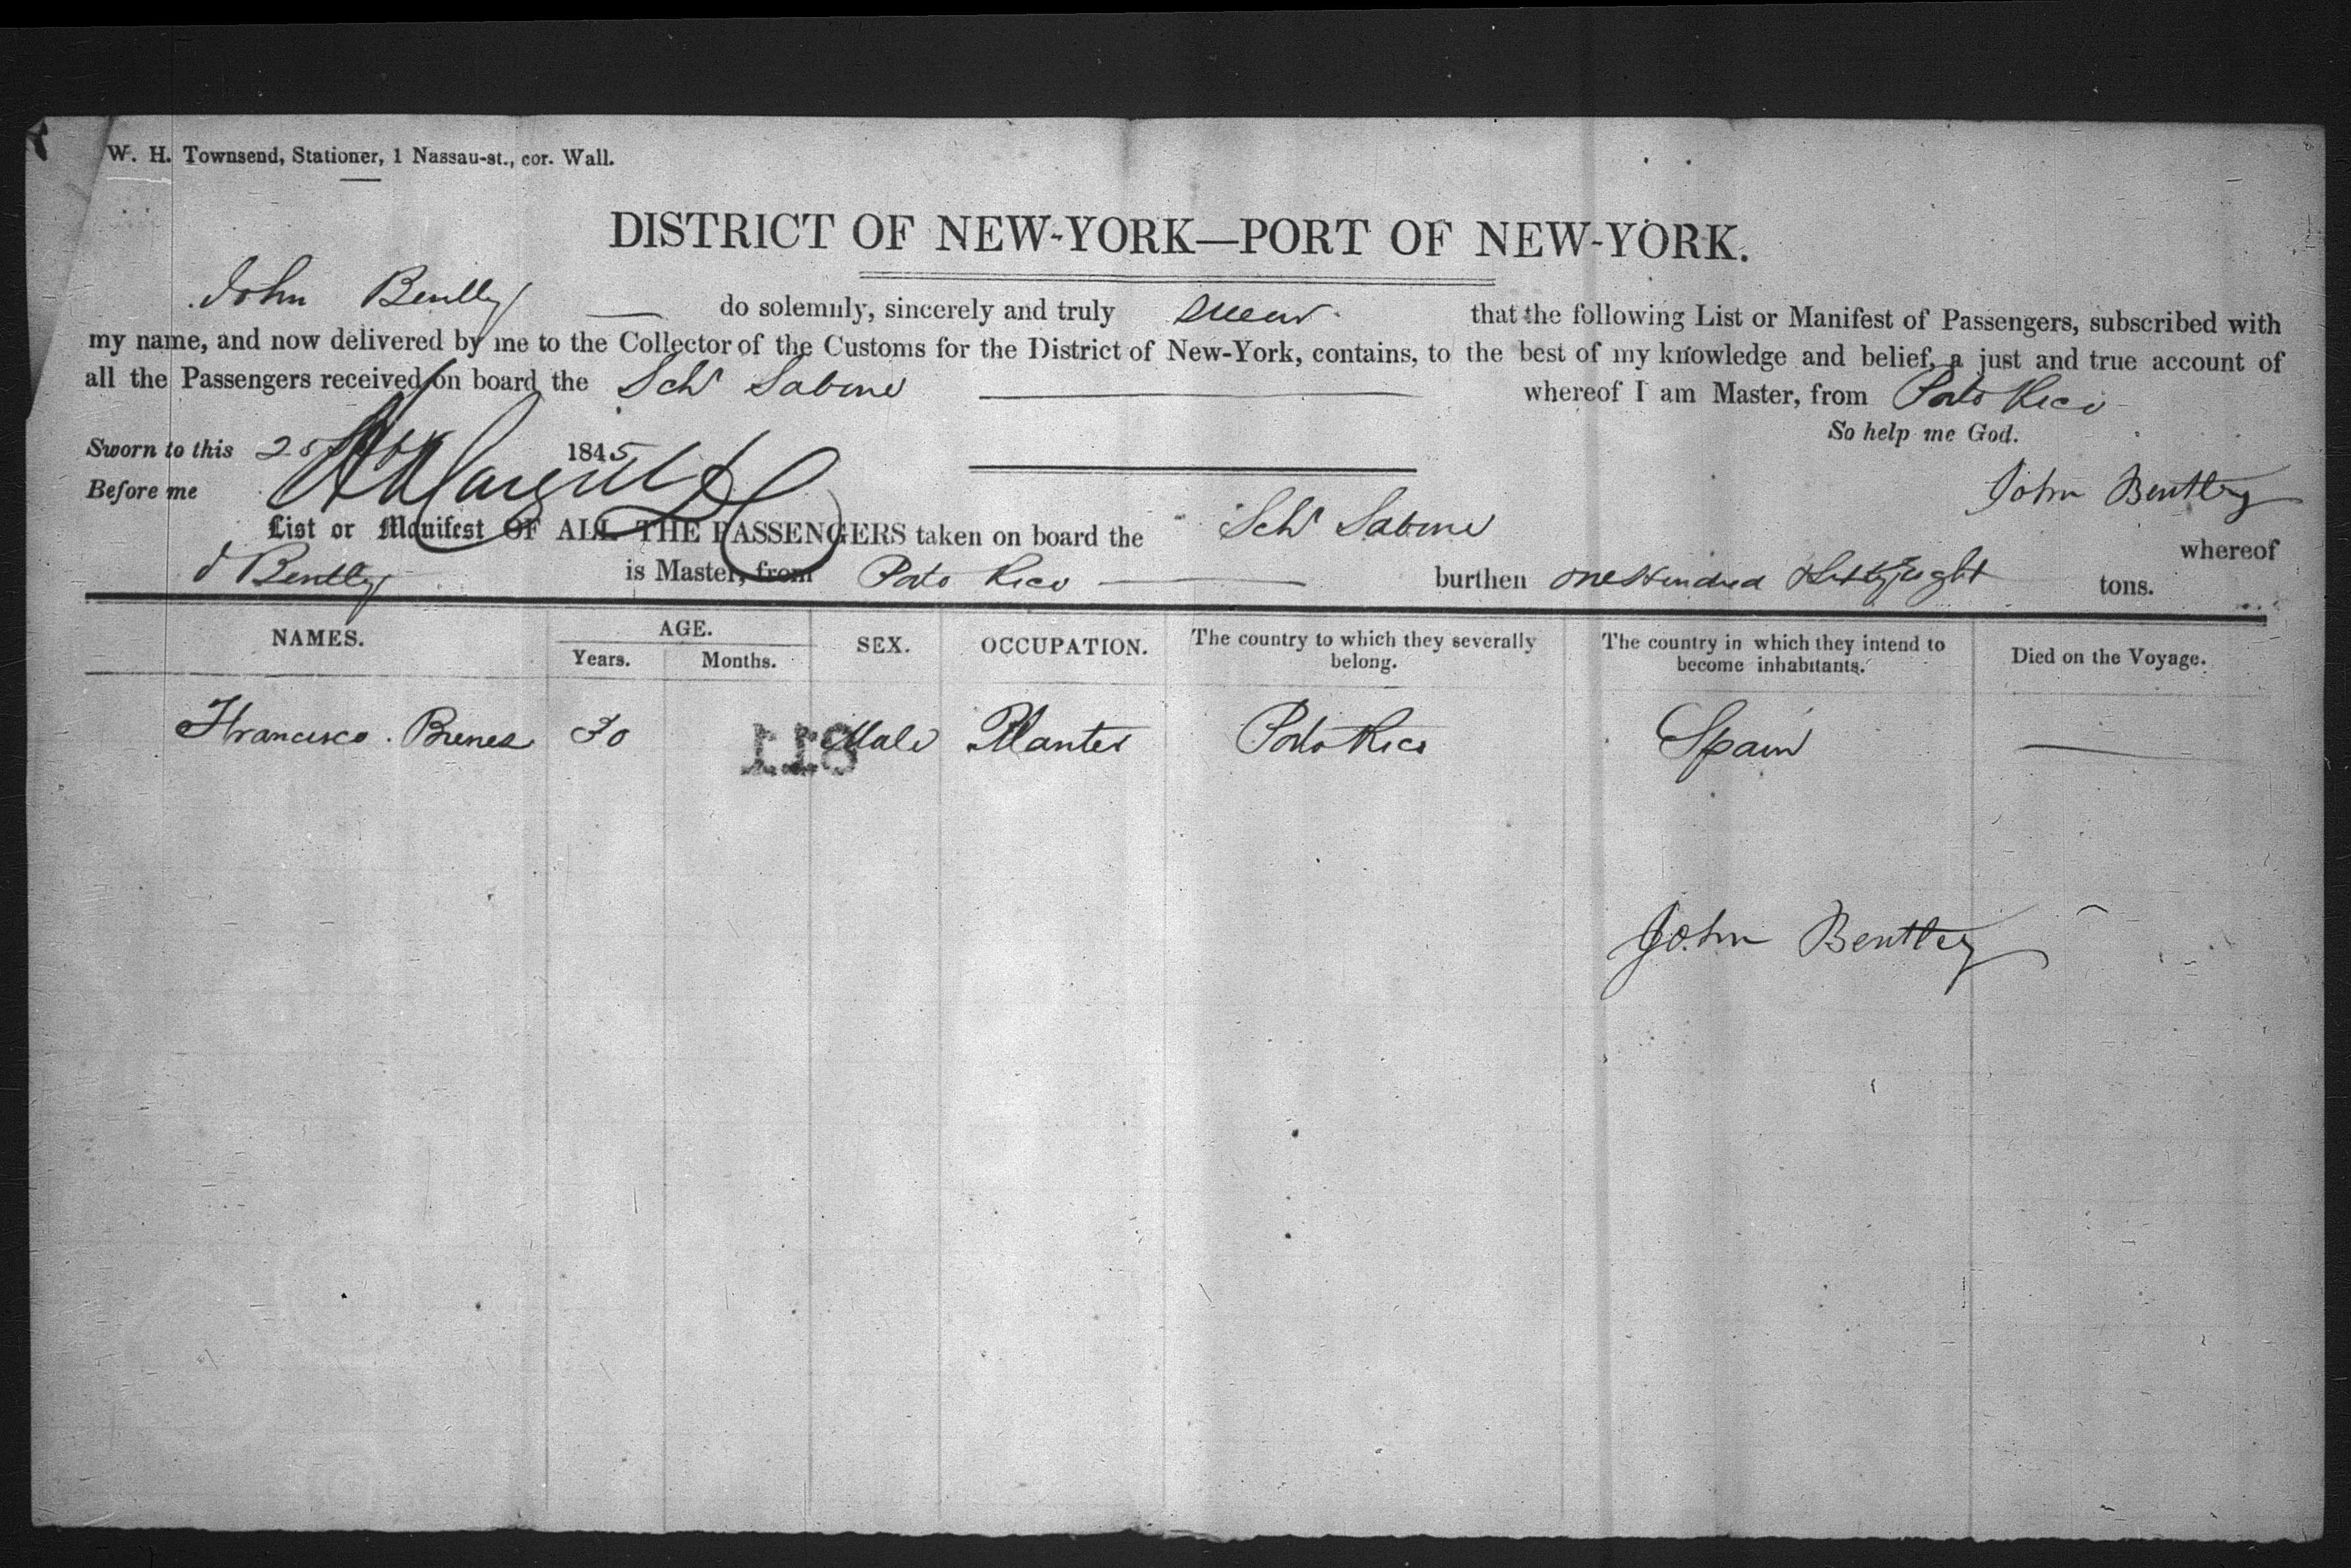 W. H. Townsend, Stationer, 1 Nassau-st., cor. Wall.
DISTRICT OF NEW-YORK—PORT OF NEW-YORK.
John Bentley do solemnly, sincerely and truly swear that the following List or Manifest of Passengers, subscribed with
my name, and now delivered by me to the Collector of the Customs for the District of New-York, contains, to the best of my knowledge and belief, a just and true account of
all the Passengers received on board the Schr Sabine whereof I am Master, from Porto Rico
So help me God.
Sworn to this 1845
Before me
John Bentley
List or Manifest OF ALL THE PASSENGERS taken on board the Schr Sabine whereof
J Bentley is Master, from Porto Rico burthen One Hundred & eight tons.
NAMES. AGE. SEX. OCCUPATION. The country to which they severally belong. The country in which they intend to become inhabitants. Died on the Voyage.
Years. Months.
Francisco 30 Male Planter Porto Rico Spain
118
John Bentley